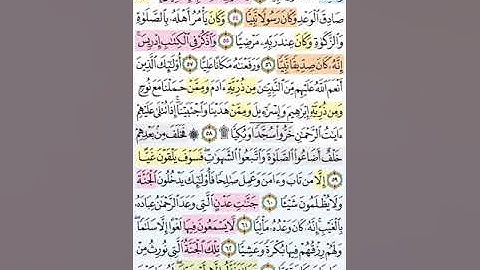 صَادِقَ الْوَعْدِ وَكَانَ رَسُولًا نَّبِيًّا ٥٤ وَكَانَ يَأْمُرُ أَهْلَهُ بِالصَّلَوٰةِ
وَالزَّكَوٰةِ وَكَانَ عِندَ رَبِّهِ مَرْضِيًّا ٥٥ وَاذْكُرْ فِي الْكِتَٰبِ إِدْرِيسَ
إِنَّهُ كَانَ صِدِّيقًا نَّبِيًّا ٥٦ وَرَفَعْنَٰهُ مَكَانًا عَلِيًّا ٥٧ أُولَٰئِكَ الَّذِينَ
أَنْعَمَ اللَّهُ عَلَيْهِم مِّنَ النَّبِيِّينَ مِن ذُرِّيَّةِ ءَادَمَ وَمِمَّنْ حَمَلْنَا مَعَ نُوحٍ
وَمِن ذُرِّيَّةِ إِبْرَٰهِيمَ وَإِسْرَٰٓءِيلَ وَمِمَّنْ هَدَيْنَا وَاجْتَبَيْنَا إِذَا تُتْلَىٰ عَلَيْهِمْ
ءَايَٰتُ الرَّحْمَٰنِ خَرُّوا سُجَّدًا وَبُكِيًّا ۩ ٥٨ ۞ فَخَلَفَ مِن بَعْدِهِمْ
خَلْفٌ أَضَاعُوا الصَّلَوٰةَ وَاتَّبَعُوا الشَّهَوَٰتِ فَسَوْفَ يَلْقَوْنَ غَيًّا
٥٩ إِلَّا مَن تَابَ وَءَامَنَ وَعَمِلَ صَٰلِحًا فَأُولَٰئِكَ يَدْخُلُونَ الْجَنَّةَ
وَلَا يُظْلَمُونَ شَيْئًا ٦٠ جَنَّٰتِ عَدْنٍ الَّتِي وَعَدَ الرَّحْمَٰنُ عِبَادَهُ
بِالْغَيْبِ إِنَّهُ كَانَ وَعْدُهُ مَأْتِيًّا ٦١ لَّا يَسْمَعُونَ فِيهَا لَغْوًا إِلَّا سَلَٰمًا
وَلَهُمْ رِزْقُهُمْ فِيهَا بُكْرَةً وَعَشِيًّا ٦٢ تِلْكَ الْجَنَّةُ الَّتِي نُورِثُ مِنْ